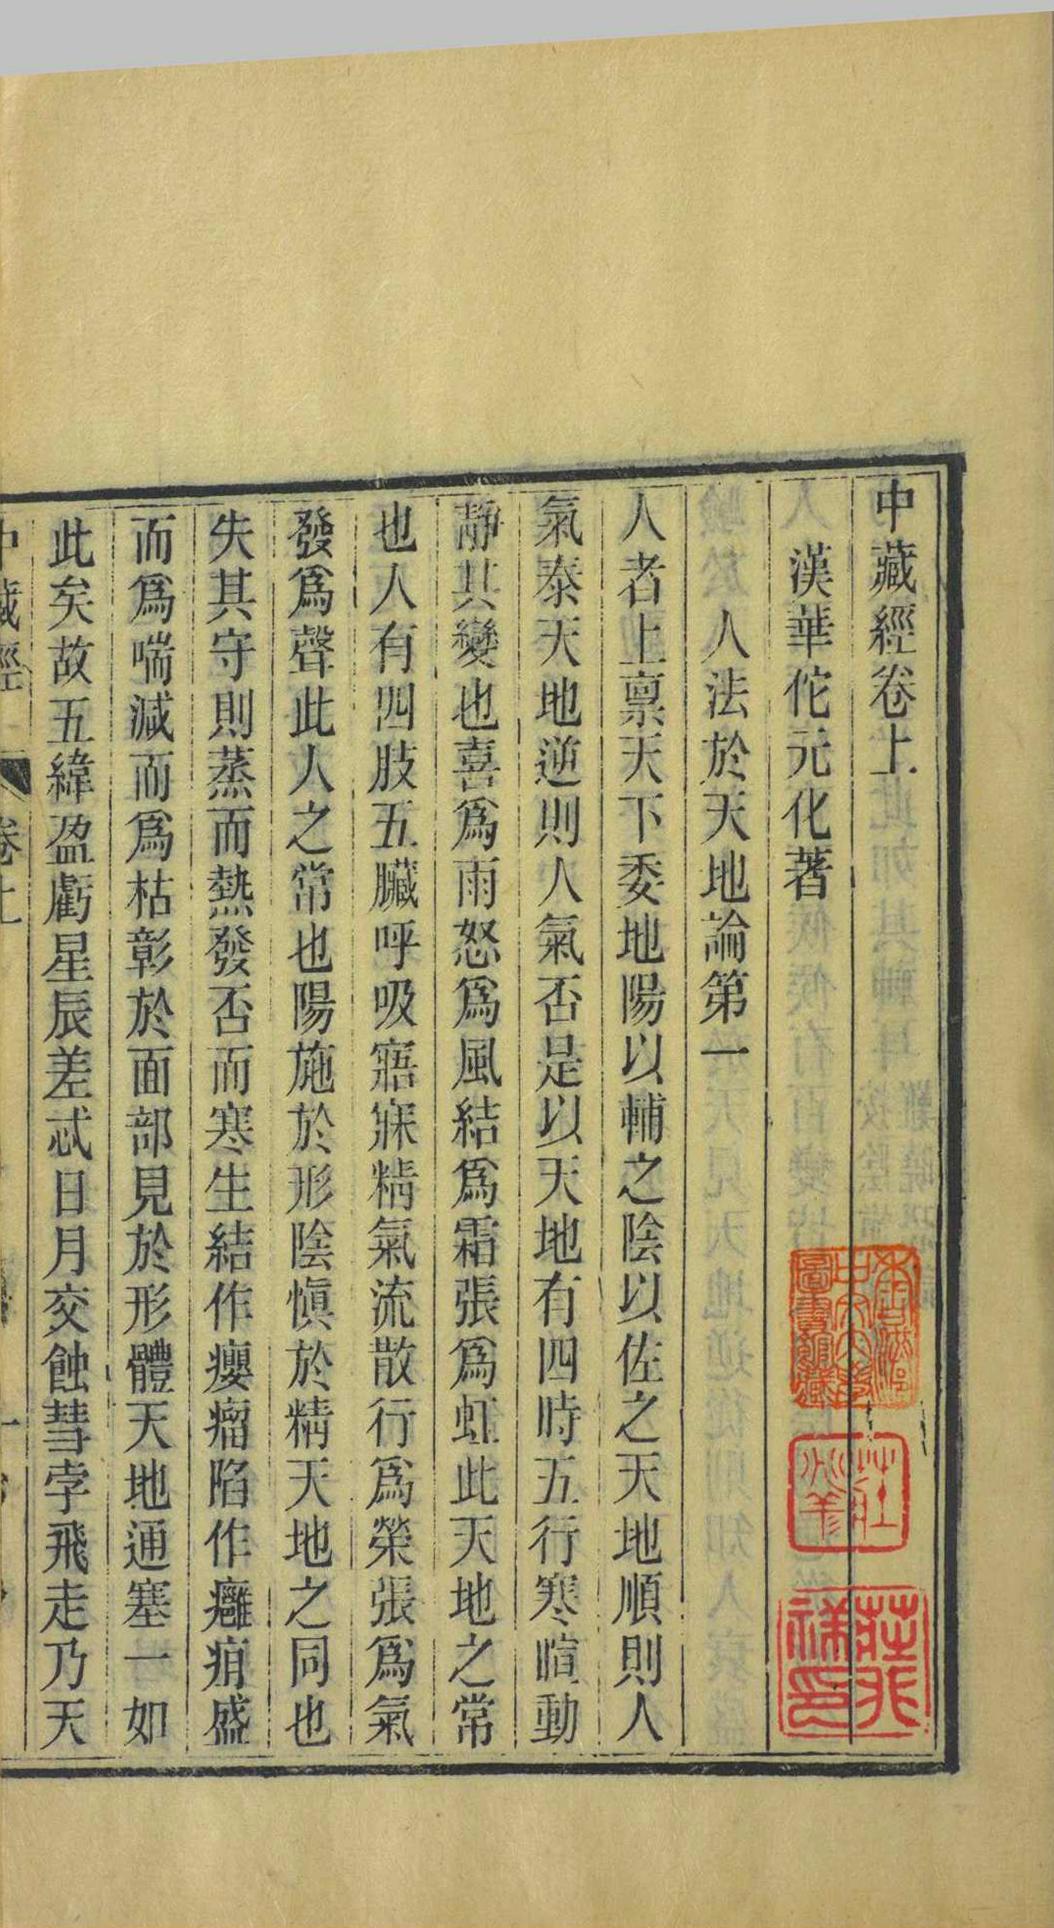 中藏經卷上
漢華佗元化著
人法於天地論第一
人者上禀天下委地陽以輔之陰以佐之天地順則人
氣泰天地逆則人氣否是以天地有四時五行寒暄動
靜其變也喜爲雨怒爲風結爲霜張爲虹此天地之常
也人有四肢五臟呼吸寤寐精氣流散行爲榮張爲氣
發爲聲此人之常也陽施於形陰慎於精天地之同也
失其守則蒸而熱發否而寒生結作癭瘤陷作癰疽盛
而爲喘減而爲枯彰於面部見於形體天地通塞一如
此矣故五緯盈虧星辰差忒日月交蝕彗孛飛走乃天
中藏經 卷上 一